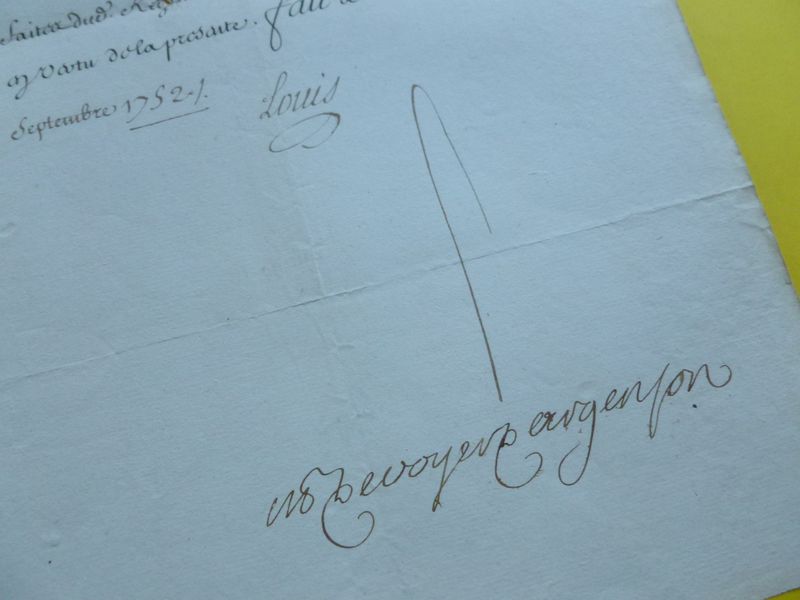 faites dud. Reg
en vertu de la presente. fait
Septembre 1752./.
Louis
M de voyer d argenson